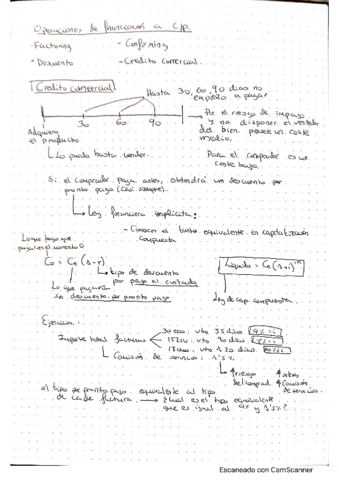 Operaciones de financiación a c/p.
- Factoring - Confirming
- Descuento - Credito comercial.
Credito comercial
Hasta 30, 60, 90 dias no
empiezo a pagar
30 60 90
Por el riesgo de impago
y no disponer el vendedor
del bien. posee un coste
medio.
Adquiere
el producto
Lo puedo hasta vender.
Para el comprador es un
coste bajo.
Si el comprador paga antes, obtendrá un descuento por
pronto pago (casi siempre).
Ley financiera implicita:
- Conocer el tanto equivalente en capitalización
compuesta
Lo que tengo que
pagar en el momento 0
C₀ = Cₙ (1-r)
tipo de descuento
por pago al contado
Lo que pagaría
sin descuento por pronto pago
Líquido = Cₙ (1+i)⁻ⁿ
Ley de cap. compuesta.
Ejercicio:
Importe total facturas
30000: vto 35 dias 9%
vto 90 dias
vto 120 dias
Comisión de servicio: 1'5%
riesgo
del comprad.
Comisión
de servicio.
a) tipo por pronto pago equivalente al tipo
de cada factura
¿Cual es el tipo equivalente
que es igual al 9% y 1'5%?
Escaneado con CamScanner